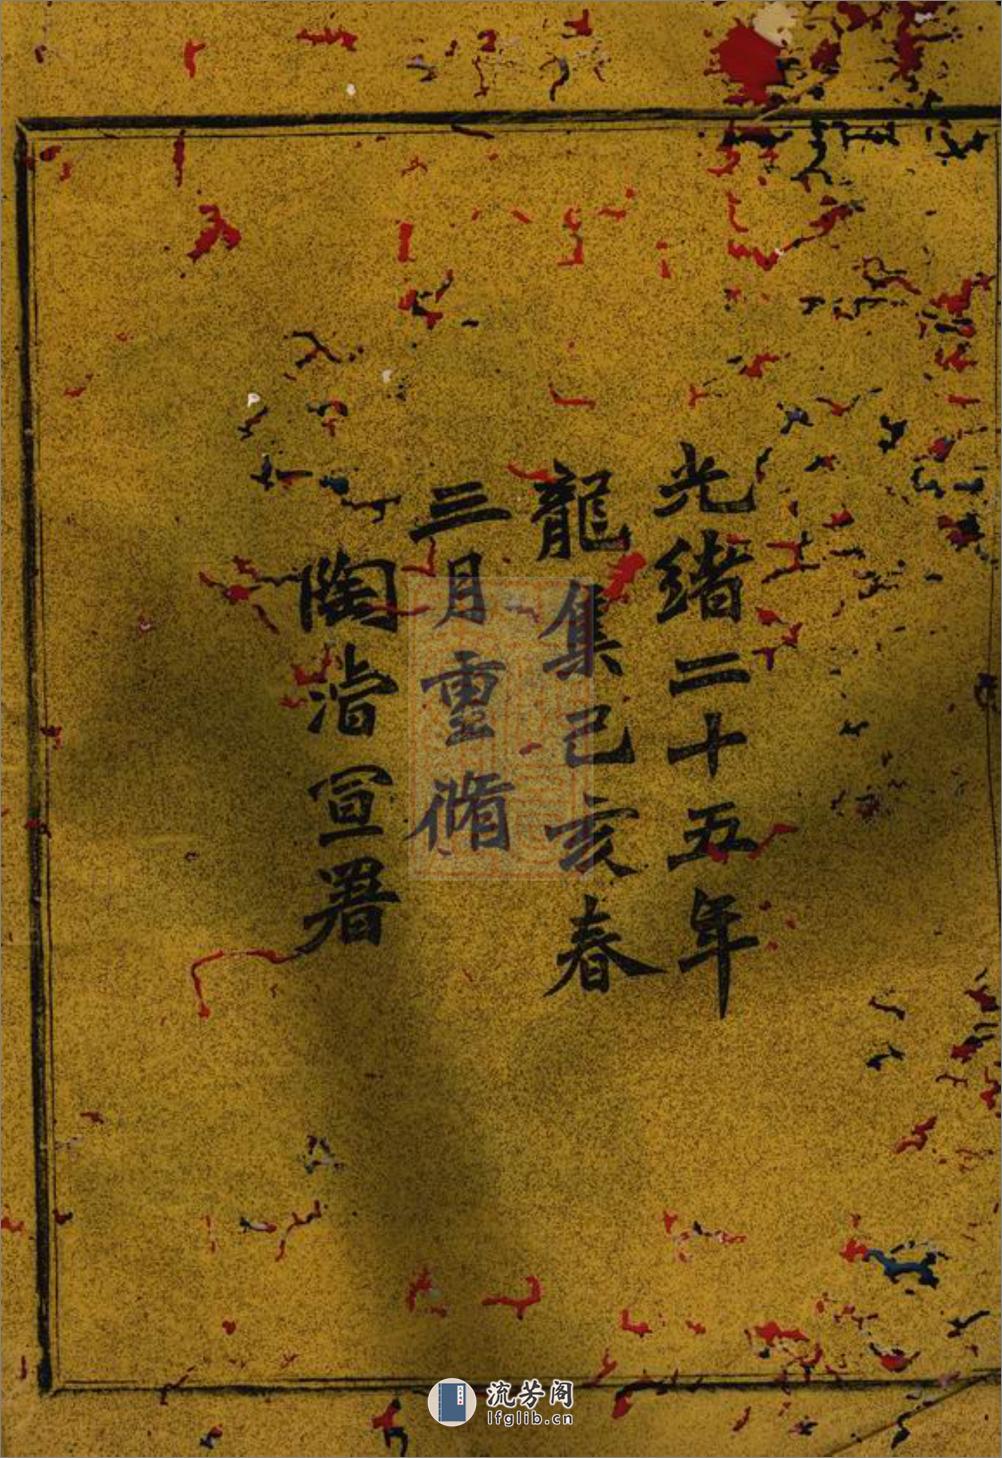 光緒二十五年
龍集己亥春
三月重脩
陶濬宣署
流芳阁
lfglib.cn